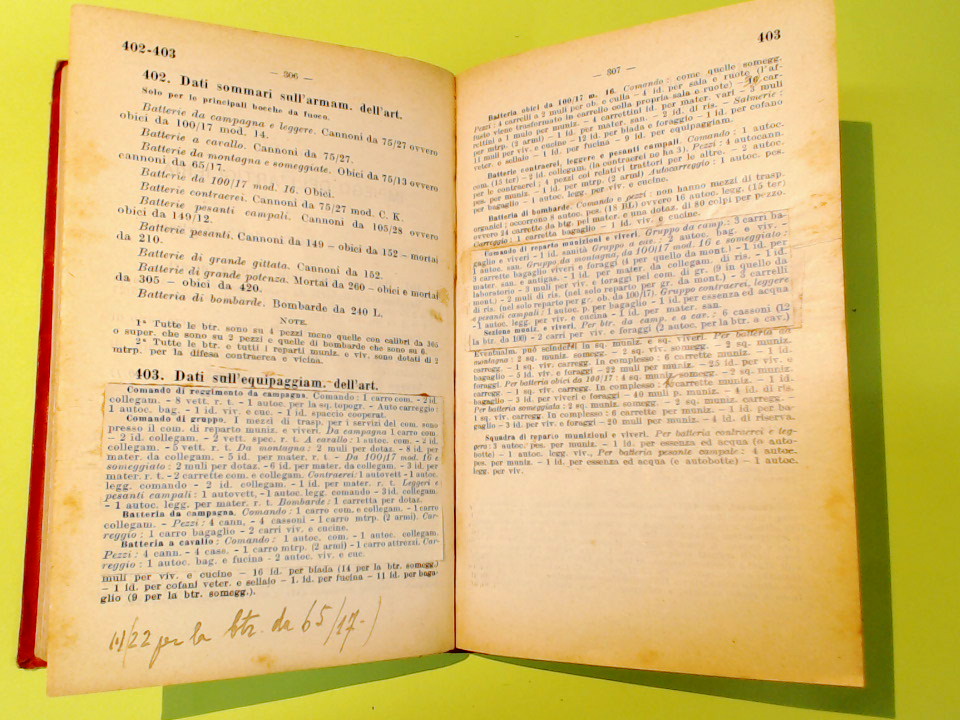 402-403
— 306 —
402. Dati sommari sull'armam. dell'art.
Solo per le principali bocche da fuoco.
Batterie da campagna e leggere. Cannoni da 75/27 ovvero
obici da 100/17 mod. 14.
Batterie a cavallo. Cannoni da 75/27.
Batterie da montagna e someggiate. Obici da 75/13 ovvero
cannoni da 65/17.
Batterie da 100/17 mod. 16. Obici.
Batterie contraerei. Cannoni da 75/27 mod. C. K.
Batterie pesanti campali. Cannoni da 105/28 ovvero
obici da 149/12.
Batterie pesanti. Cannoni da 149 - obici da 152 - mortai
da 210.
Batterie di grande gittata. Cannoni da 152.
Batterie di grande potenza. Mortai da 260 - obici e mortai
da 305 - obici da 420.
Batteria di bombarde. Bombarde da 240 L.
NOTE.
1ª Tutte le btr. sono su 4 pezzi meno quelle con calibri da 305
o super. che sono su 2 pezzi e quelle di bombarde che sono su 6.
2ª Tutte le btr. e tutti i reparti muniz. e viv. sono dotati di 2
mtrp. per la difesa contraerea e vicina.
403. Dati sull'equipaggiam. dell'art.
Comando di reggimento da campagna. Comando: 1 carro com. - 2 id.
collegam. - 8 vett. r. t. - 1 autoc. per la sq. topogr. - Auto carreggio:
1 autoc. bag. - 1 id. viv. e cuc. - 1 id. spaccio cooperat.
Comando di gruppo. I mezzi di trasp. per i servizi del com. sono
presso il com. di reparto muniz. e viveri. Da campagna 1 carro com.
- 2 id. collegam. - 2 vett. spec. r. t. A cavallo: 1 autoc. com. - 2 id.
collegam. - 5 vett. r. t. Da montagna: 2 muli per dotaz. - 8 id. per
mater. da collegam. - 5 id. per mater. r. t. - Da 100/17 mod. 16 e
someggiato: 2 muli per dotaz. - 6 id. per mater. da collegam. - 3 id. per
mater. r. t. - 2 carrette com. e collegam. Contraerei: 1 autovett - 1 autoc.
legg. comando - 2 id. collegam. - 1 id. per mater. r. t. Leggeri e
pesanti campali: 1 autovett. - 1 autoc. legg. comando - 3 id. collegam.
- 1 autoc. legg. per mater. r. t. Bombarde: 1 carretta per dotaz.
Batteria da campagna. Comando: 1 carro com. e collegam. - 1 carro
collegam. - Pezzi: 4 cann. - 4 cassoni - 1 carro mtrp. (2 armi). Car-
reggio: 1 carro bagaglio - 2 carri viv. e cucine.
Batteria a cavallo: Comando: 1 autoc. com. - 1 autoc. collegam.
Pezzi: 4 cann. - 4 cass. - 1 carro mtrp. (2 armi) - 1 carro attrezzi. Car-
reggio: 1 autoc. bag. e fucina - 2 autoc. viv. e cuc.
muli per viv. e cucine - 16 id. per biada (14 per la btr. somegg.)
- 1 id. per cofani veter. e sellaio - 1. id. per fucina - 11 id. per baga-
glio (9 per la btr. somegg.).
22 per la btr. da 65/17.)
403
— 307 —
Batteria obici da 100/17 m. 16. Comando: come quelle somegg.
Pezzi: 4 carrelli a 2 muli per ob. e culla - 4 id. per sala e ruote (l'af-
fusto viene trasformato in carrello colla propria sala e ruote) - car-
rettini a 1 mulo per muniz. - 4 carrettini id. per mater. vari - 3 muli
per mtrp. (2 armi) - 1 id. per mater. san. - 2 id. di ris. - Salmerie:
11 muli per viv. e cucine - 12 id. per biada e foraggio - 1 id. per cofano
veter. e sellaio - 1 id. per fucina - 9 id. per equipaggiam.
Batterie contraerei, leggere e pesanti campali. Comando: 1 autoc.
com. (15 ter) - 2 id. collegam. (la contraerei ne ha 3). Pezzi: 4 autocann.
per le contraerei; 4 pezzi coi relativi trattori per le altro. - 2 autoc.
pes. per muniz. - 1 id. per mtrp. (2 armi) Autocarreggio: 1 autoc. pes.
per bagaglio - 1 autoc. legg. per viv. e cucine.
Batteria di bombarde. Comando e pezzi: non hanno mezzi di trasp.
organici; occorrono 8 autoc. pes. (18 BL) ovvero 16 autoc. legg. (15 ter)
ovvero 24 carrette da btg. pel mater. e una dotaz. di 80 colpi per pezzo.
Carreggio: 1 carretta bagaglio - 1 id. viv. e cucine.
Comando di reparto munizioni e viveri. Gruppo da camp.: 3 carri ba-
gaglio e viveri - 1 id. sanità Gruppo a cav.: 2 autoc. bag. e viv. -
1 autoc. san. Gruppo da montagna, da 100/17 mod. 16 e someggiato:
3 carrette bagaglio viveri e foraggi (4 per quello da mont.) - 1 id. per
mater. san. e antigas. - 1 id. per mater. da collegam. di ris. - 1 id.
laboratorio - 3 muli per viv. e foraggi pel com. di gr. (9 in quello da
mont.) - 2 muli di ris. (nel solo reparto per gr. da mont.) - 2 carrelli
di ris. (nel solo reparto per gr. ob. da 100/17). Gruppo contraerei, leggere
e pesanti campali: 1 autoc. p. per bagaglio - 1 id. per essenza ed acqua
- 1 autoc. legg. per viv. e cucine - 1 id. per mater. san.
Sezione muniz. e viveri. Per btr. da camp. e a cav.: 6 cassoni (12
la btr. da 100) - 2 carri per viv. e foraggi (2 autoc. per la btr. a cav.)
Eventualm. può scindersi in sq. muniz. e sq. viveri. Per batteria da
montagna: 2 sq. muniz. somegg. - 2 sq. viv. somegg. - 2 sq. muniz.
carregg. - 1 sq. viv. carregg. In complesso: 6 carrette muniz. - 1 id.
bagaglio - 5 id. viv. e foraggi - 22 muli per muniz. - 25 id. per viv. e
foraggi. Per batteria obici da 100/17: 4 sq. muniz. somegg. - 2 sq. muniz.
carregg. - 1 sq. viv. carregg. In complesso: carrette muniz. - 1 id.
bagaglio - 3 id. per viveri e foraggi - 40 muli p. muniz. - 4 id. di ris.
Per batteria someggiata: 2 sq. muniz. somegg. - 2 sq. muniz. carregg. -
1 sq. viv. carregg. In complesso: 6 carrette per muniz. - 1 id. per ba-
gaglio - 3 id. per viv. e foraggi - 20 muli per muniz. - 4 id. di riserva.
Squadra di reparto munizioni e viveri. Per batteria contraerei e leg-
gera: 3 autoc. pes. per muniz. - 1 id. per essenza ed acqua (o auto-
botte) - 1 autoc. legg. per viv. Per batteria pesante campale: 4 autoc.
pes. per muniz. - 1 id. per essenza ed acqua (e autobotte) - 1 autoc.
legg. per viv.